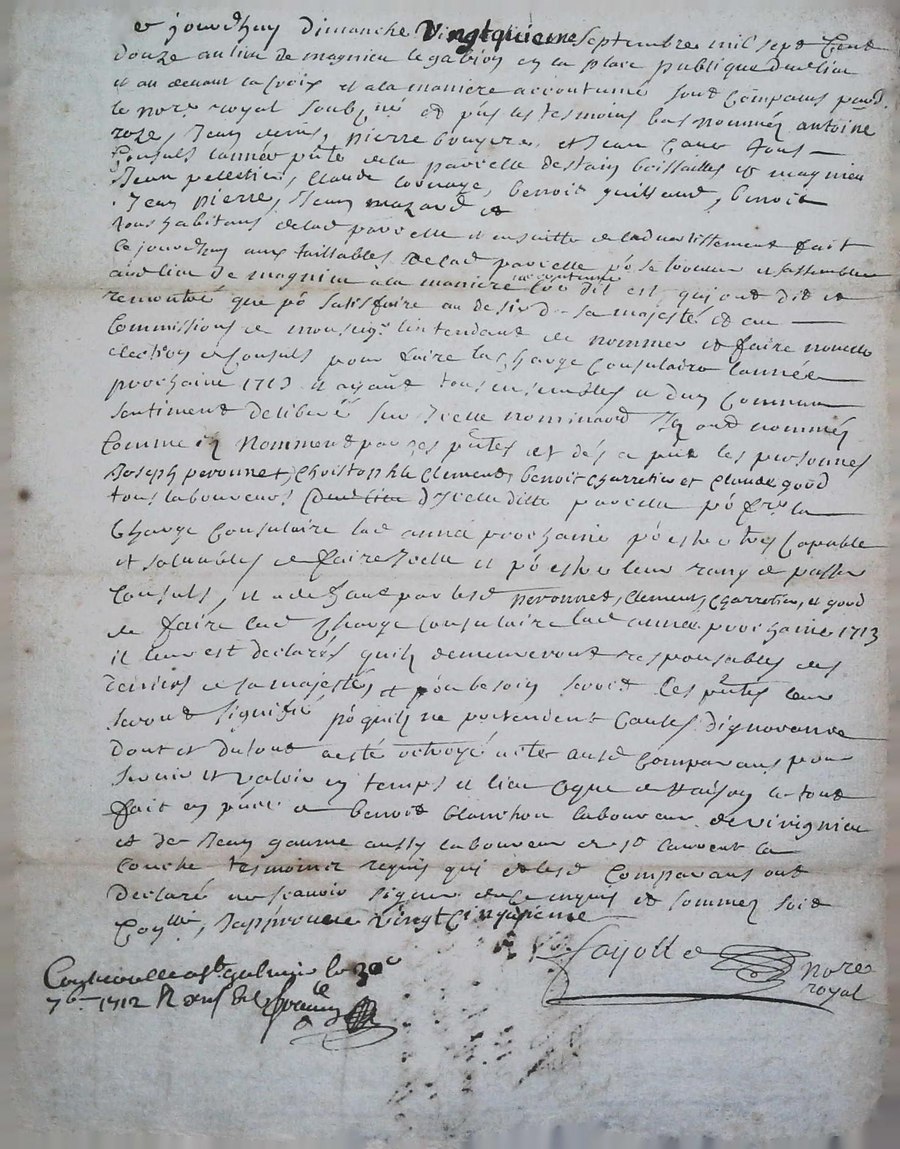 ejourdhuy dimanche Vingtquieme septembre mil sept Cent
douze au lieu de magnieu le gabion en la place publique dudit lieu
et au devant la croix et a la maniere accoutumé sont Comparus pard
le nore royal soubzné et pñs les tesmoins bas nommés antoine
roze, Jean pierre bouyer et Jean tous
Consuls lannée pñte de la parcelle destain boissailles et magnieu
Jean pelletier, Claude benoit guilland, benoit
Jean pierre, Jean mazard et
tous habitans de lad parcelle et ensuitte de ladvertissement fait
ce jourdhuy aux taillables de lad parcelle po se trouver et sassembler
aud lieu de magnieu a la maniere accoutumé dit est, qui ont dit et
remontré que po satisfaire au desir d sa majesté et au
Commissions de monseigr lintendant de nommer et faire nouvelle
election de Consuls pour faire la charge Consulaire lannée
prochaine 1713 et ayant tous ensembles et dun Commun
sentiment deliberé sur Icelle nominaõn Ils ont nommés
Comme ils nomment par ces pñtes et dés a pñt les personnes
Joseph peronnet, Christophle Clement, benoit Charretier et Claude good
tous laboureurs dIcelle ditte parcelle po fre la
Charge Consulaire lad année prochaine po estre tres Capable
et soluables de faire Icelle et po estre leur rang de passer
Consuls, et a defaut par lesd peronnet, Clement, Charretier, et good
de faire lad Charge Consulaire lad année prochaine 1713
il leur est declarés quils demeureront responsables des
deniers de sa majesté, et po besoin seroit ces pñtes leur
seront signifié po quils ne pretendent Causes dignorance
dont et du tout a esté octroyé actes ausd Comparans pour
servir et valoir en temps et lieu Ce que de raison le tout
fait en pñce de benoit blanchon laboureur de vivignieu
et de Jean gaume aussy laboureur de st laurent la
Couche tesmoins requis qui et lesd Comparans ont
declaré ne scavoir signer de ce enquis et sommez soit
Coñllé, Japprouve Vingt Cinquieme
fayolle nore
royal
Controlle a st galmier le 30e
7b 1712 R neuf